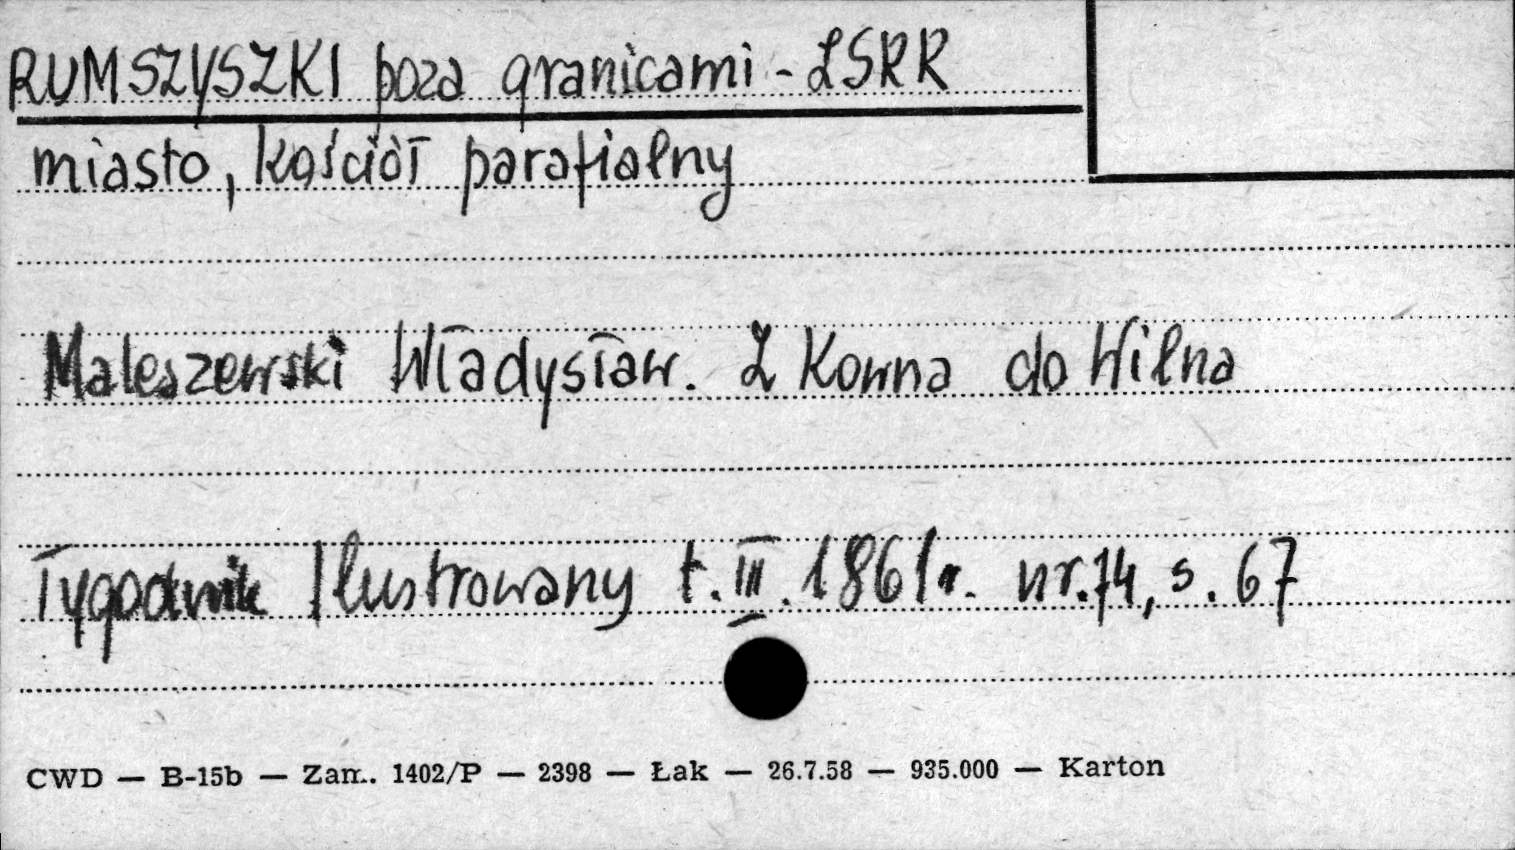 RUMSZYSZKI poza granicami - LSRR
miasto, kościół parafialny
Maleszewski Władysław. Z Kowna do Wilna
Tygodnik Ilustrowany t. III. 1861 r. nr. 74, s. 67
CWD — B-15b — Zam. 1402/P — 2398 — Łak — 26.7.58 — 935.000 — Karton